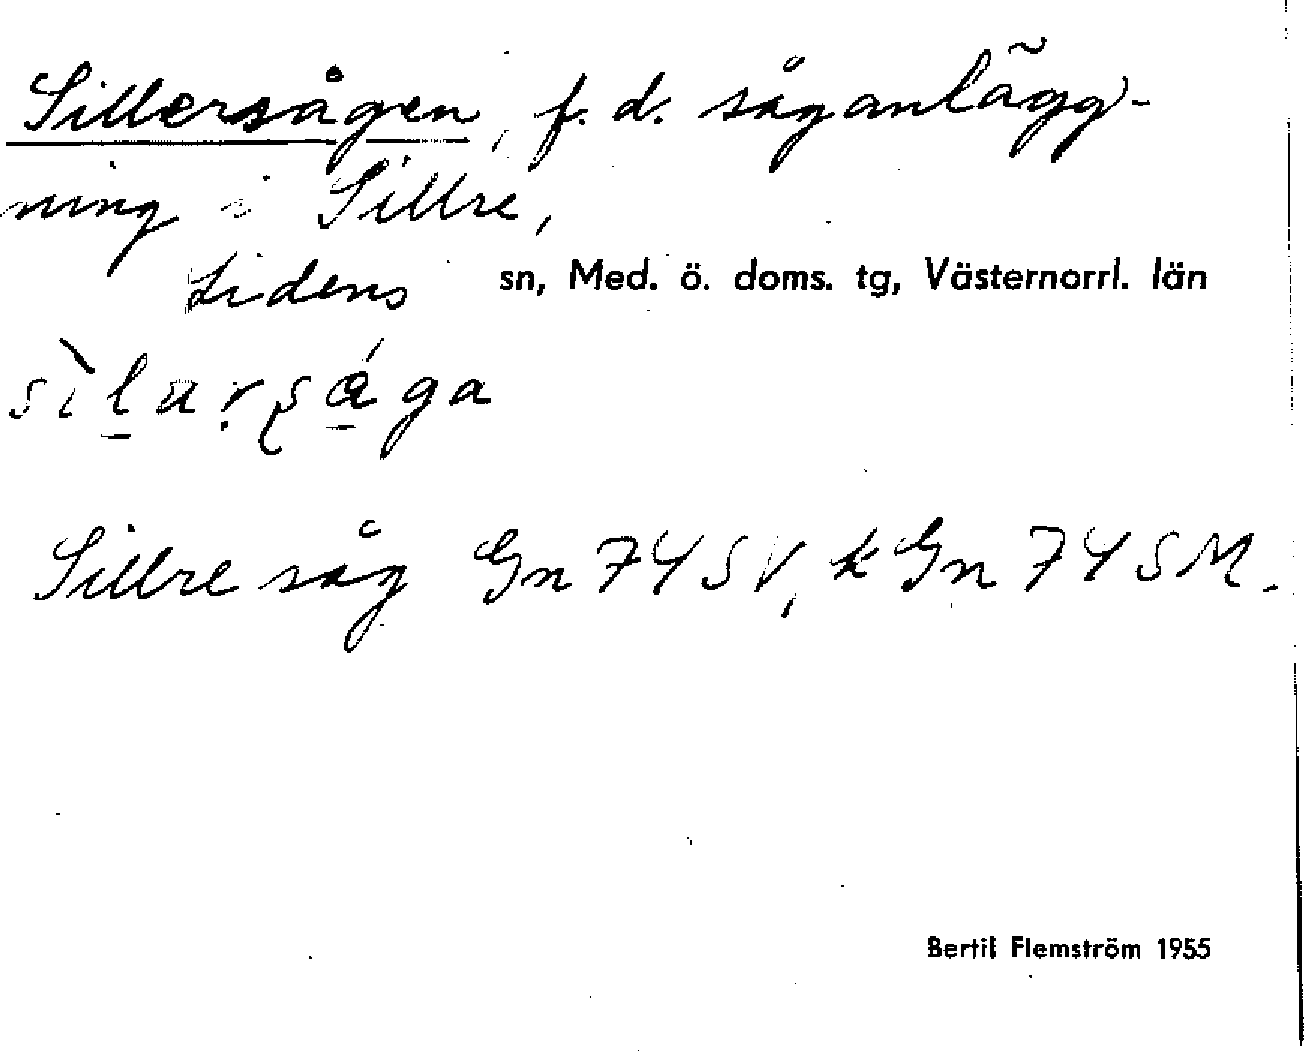 Sillersågen, f. d. såganlägg-
ning i Sillre,
Lidens sn, Med. ö. doms. tg, Västernorrl. län
Sillre såg Gn 74 SV, k Gn 74 SM.
Bertil Flemström 1955